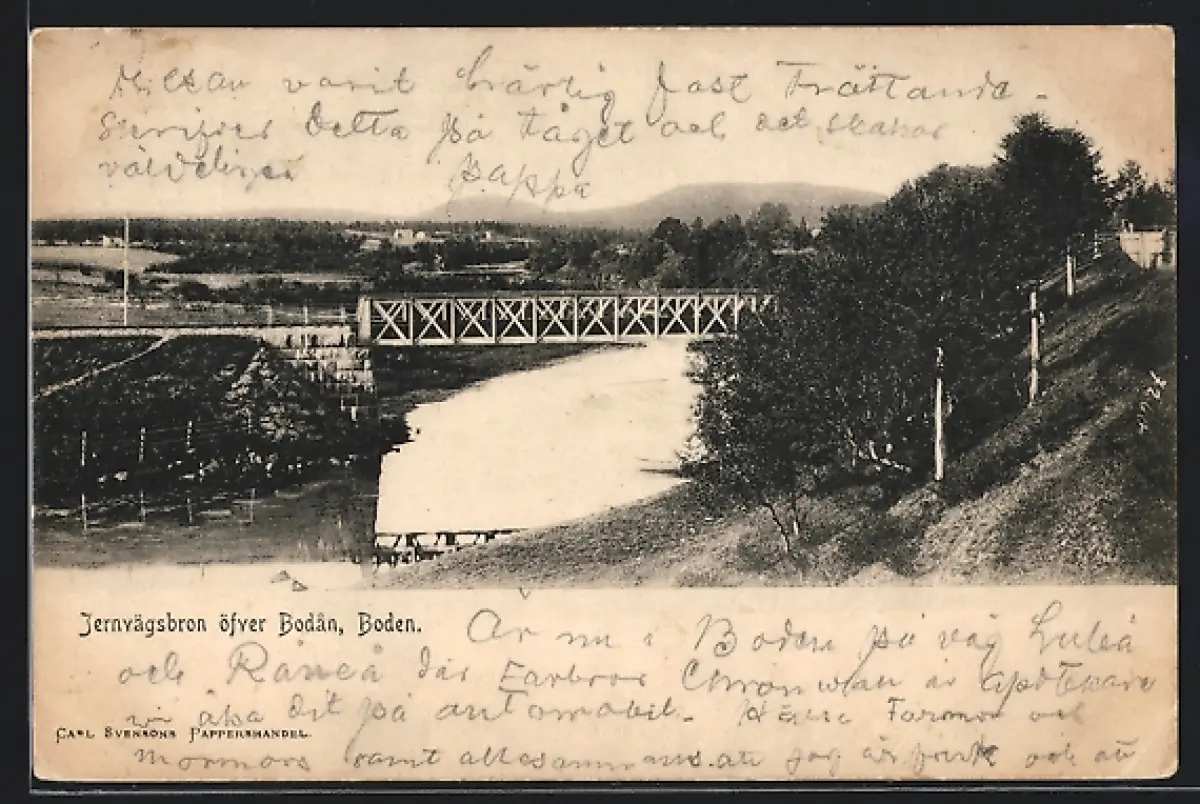 Resan varit härlig fast tröttande -
skrifves detta på tåget och det skakar
väldeliga
pappa
Jernvägsbron öfver Bodån, Boden.
Är nu i Boden på väg Luleå
och Råneå där Farbror är Apotekare
vi åka dit på automobil. Hälsa Farmor och
CARL SVENSONS PAPPERSHANDEL.
Mormors samt allesammans att jag är frisk och att